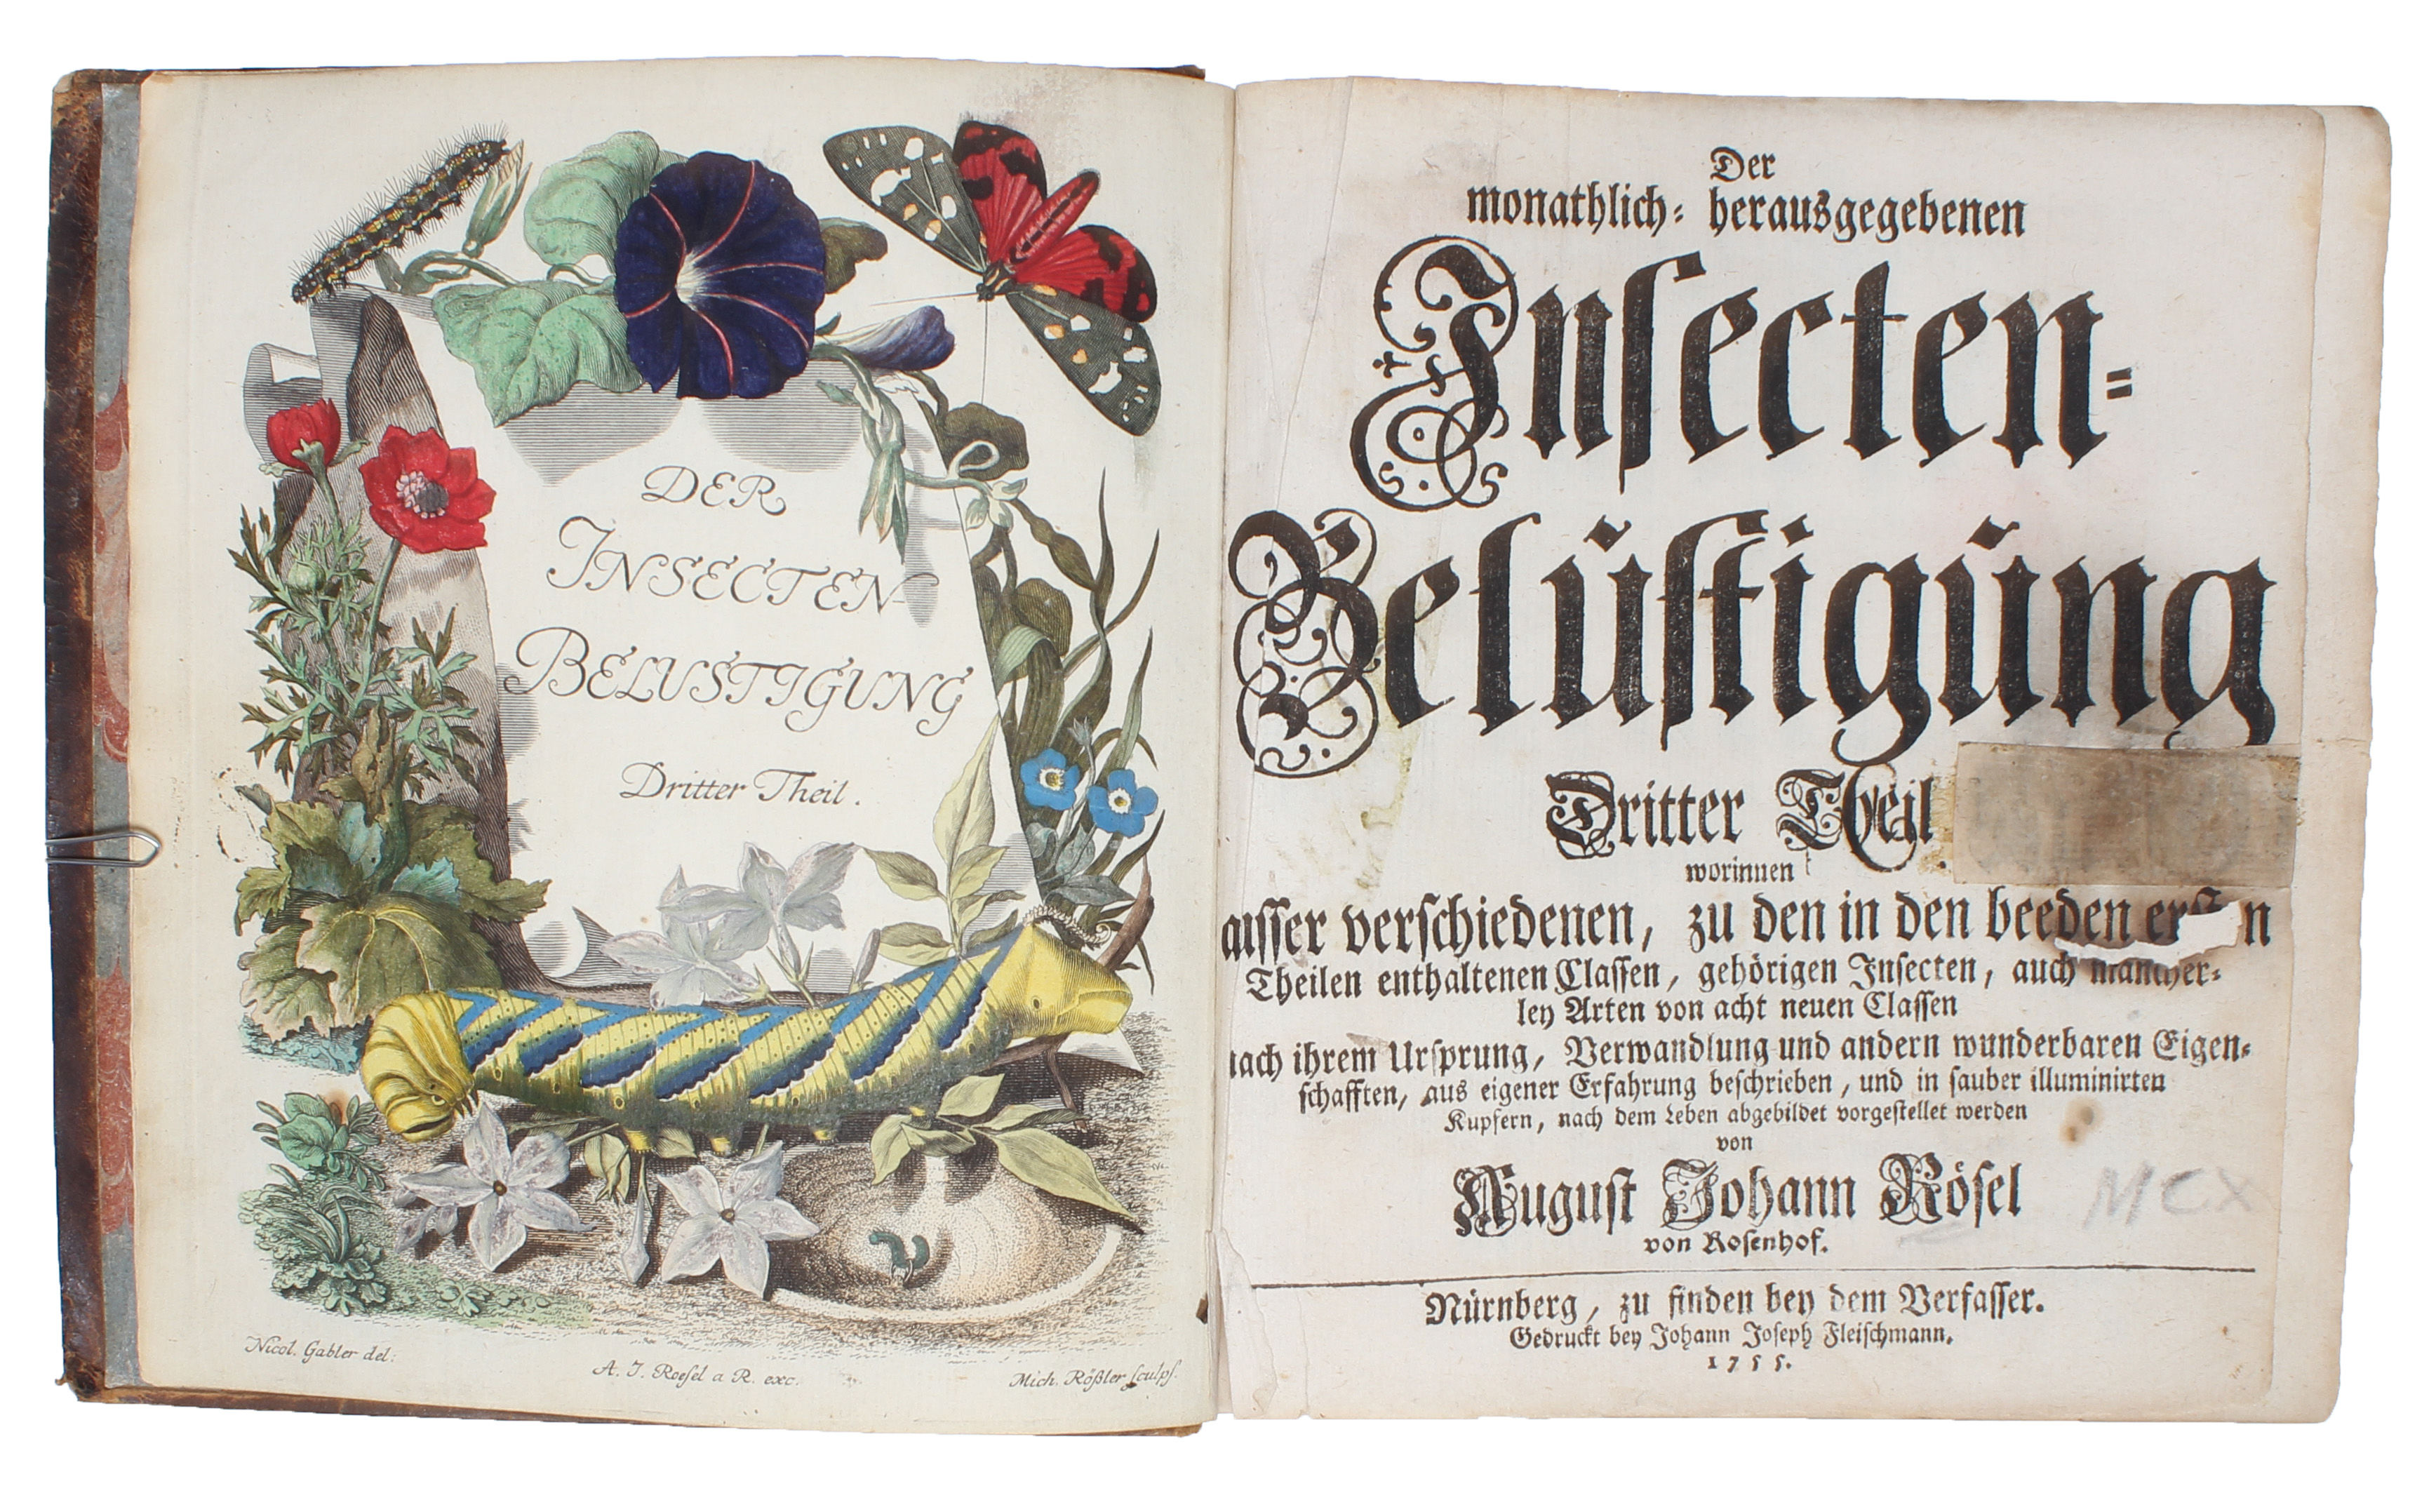 DER
INSECTEN-
BELUSTIGUNG
Dritter Theil.
Nicol. Gabler del:
A. J. Roesel a R. exc.
Mich. Rößler sculps.
Der
monathlich-herausgegebenen
Insecten-
Belustigung
Dritter Theil
worinnen
ausser verschiedenen, zu den in den beeden
Theilen enthaltenen Classen, gehörigen Insecten, auch mancher-
ley Arten von acht neuen Classen
nach ihrem Ursprung, Verwandlung und andern wunderbaren Eigen-
schafften, aus eigener Erfahrung beschrieben, und in sauber illuminirten
Kupfern, nach dem Leben abgebildet vorgestellet werden
von
August Johann Rösel
von Rosenhof.
MCX
Nürnberg, zu finden bey dem Verfasser.
Gedruckt bey Johann Joseph Fleischmann.
1755.